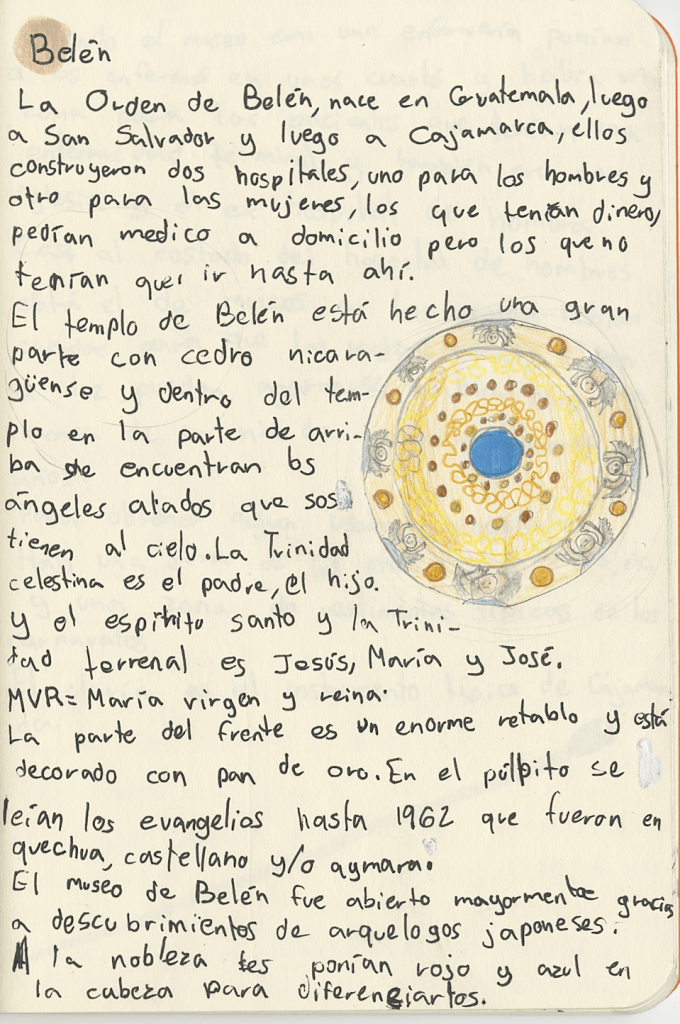 Belén
La Orden de Belén, nace en Guatemala, luego
a San Salvador y luego a Cajamarca, ellos
construyeron dos hospitales, uno para los hombres y
otro para las mujeres, los que tenían dinero,
pedían medico a domicilio pero los que no
tenían que ir hasta ahí.
El templo de Belén está hecho una gran
parte con cedro nicara-
güense y dentro del tem-
plo en la parte de arri-
ba se encuentran los
ángeles alados que sos
tienen al cielo. La Trinidad
celestina es el padre, el hijo.
y el espíritu santo y la Trini-
dad terrenal es Jesús, María y José.
MVR= María virgen y reina.
La parte del frente es un enorme retablo y está
decorado con pan de oro. En el púlpito se
leían los evangelios hasta 1962 que fueron en
quechua, castellano y/o aymara.
El museo de Belén fue abierto mayormente gracias
a descubrimientos de arquelogos japoneses.
A la nobleza les ponían rojo y azul en
la cabeza para diferenciarlos.